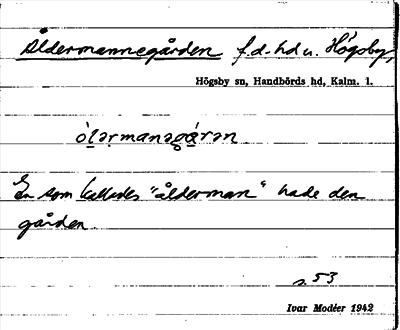 Åldermannegården f.d. hd u. Högsby,
Högsby sn, Handbörds hd, Kalm. l.
En som kallades "ålderman" hade den
gården.
s. 53
Ivar Modéer 1942